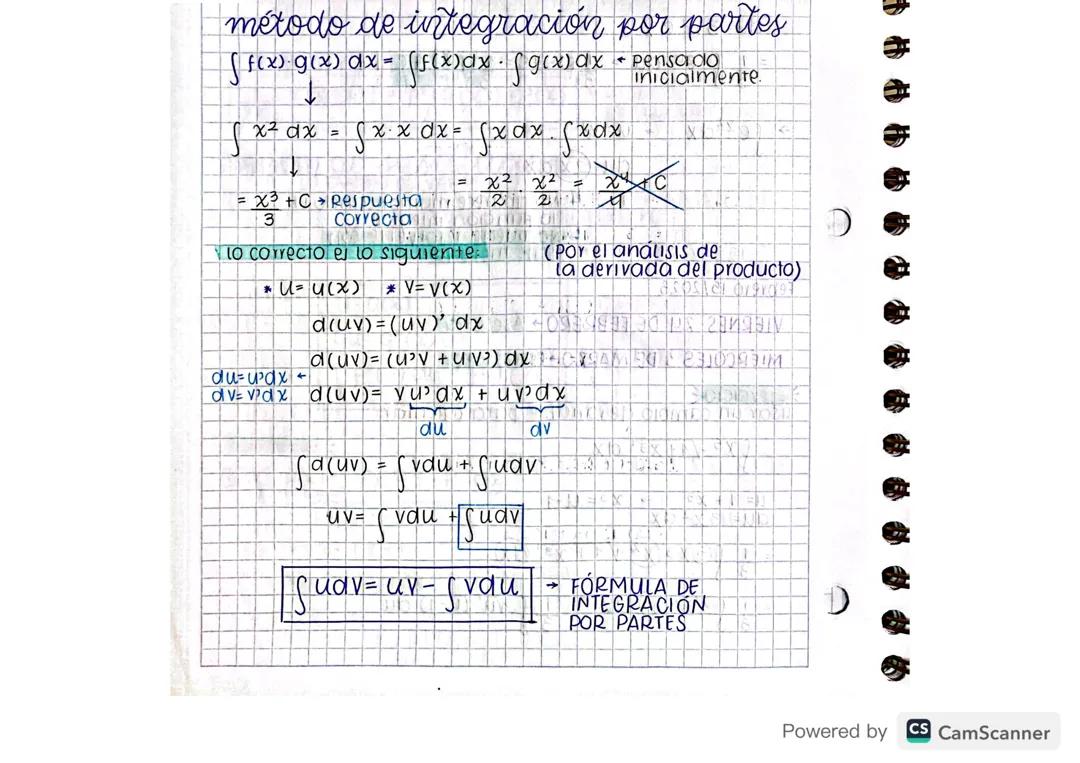 método de integración por partes
∫ f(x)·g(x) dx = ∫f(x)dx · ∫g(x)dx ← pensado inicialmente.
↓
∫ x² dx = ∫x·x dx = ∫x dx . ∫x dx
↓
= x²/2 . x²/2 = x⁴/4 + C
= x³/3 + C → Respuesta correcta
lo correcto es lo siguiente: (Por el análisis de la derivada del producto)
* u= u(x) * v= v(x)
d(uv)=(uv)' dx
d(uv)= (u'v + uv') dx
du= u'dx ←
dv= v'dx d(uv)= vu'dx + uv'dx
du dv
∫d(uv) = ∫vdu + ∫udv
uv= ∫vdu + ∫udv
∫udv= uv- ∫vdu → FÓRMULA DE
INTEGRACIÓN
POR PARTES
Powered by CS CamScanner